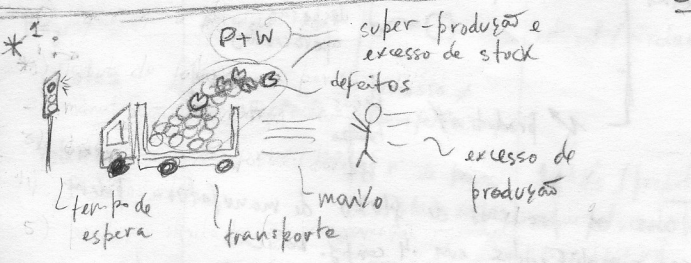 * 1
P+W
super-produção e
excesso de stock
defeitos
excesso de
produção
tempo de
espera
transporte
5)